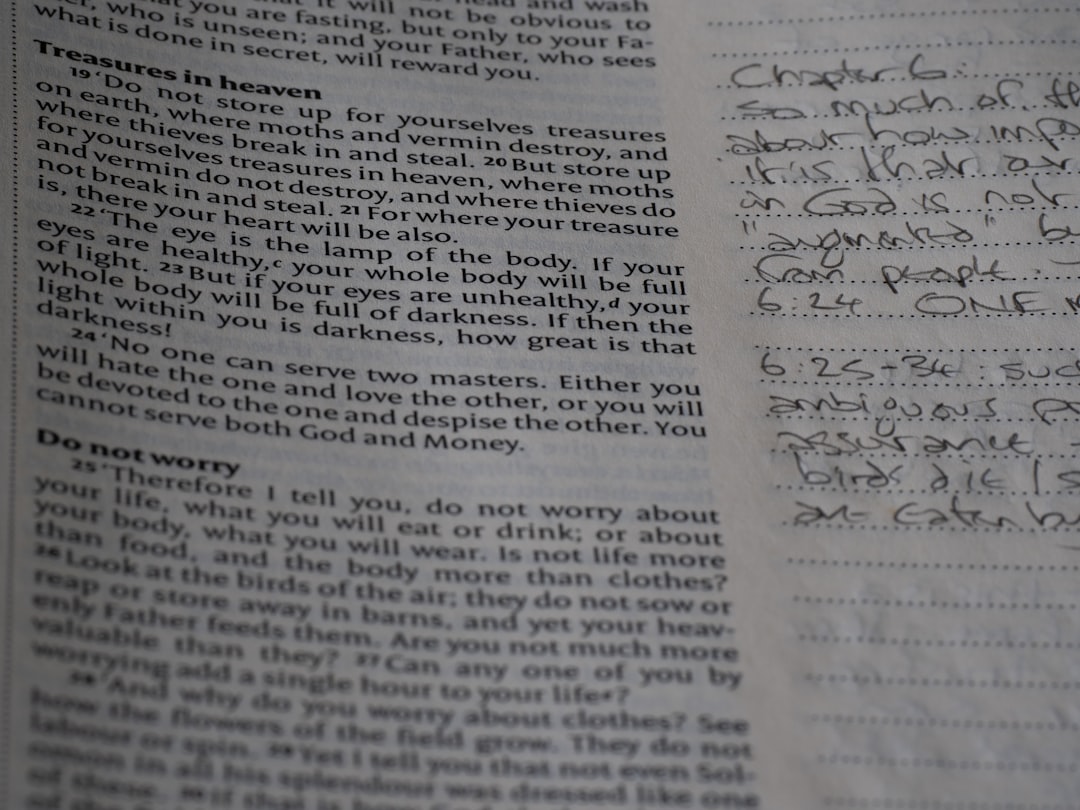 it will not be obvious to
you are fasting, but only to your Fa-
who is unseen; and your Father, who sees
what is done in secret, will reward you.
Treasures in heaven
19 ‘Do not store up for yourselves treasures
on earth, where moths and vermin destroy, and
where thieves break in and steal. 20 But store up
for yourselves treasures in heaven, where moths
and vermin do not destroy, and where thieves do
not break in and steal. 21 For where your treasure
is, there your heart will be also.
22 ‘The eye is the lamp of the body. If your
eyes are healthy,c your whole body will be full
of light. 23 But if your eyes are unhealthy,d your
whole body will be full of darkness. If then the
light within you is darkness, how great is that
darkness!
24 ‘No one can serve two masters. Either you
will hate the one and love the other, or you will
be devoted to the one and despise the other. You
cannot serve both God and Money.
Do not worry
25 ‘Therefore I tell you, do not worry about
your life, what you will eat or drink; or about
your body, what you will wear. Is not life more
than food, and the body more than clothes?
26 Look at the birds of the air; they do not sow or
reap or store away in barns, and yet your heav-
enly Father feeds them. Are you not much more
valuable than they? 27 Can any one of you by
worrying add a single hour to your life?
28 ‘And why do you worry about clothes? See
how the flowers of the field grow. They do not
labour or spin. 29 Yet I tell you that not even Sol-
omon in all his splendour was dressed like one
of these. 30 If that is how God
Chapter 6:
so much of
about how
it is that
in God is not
"augmented"
from people.
6:24 ONE
6:25-34:
ambiguous
assurance -
birds die /
are eaten